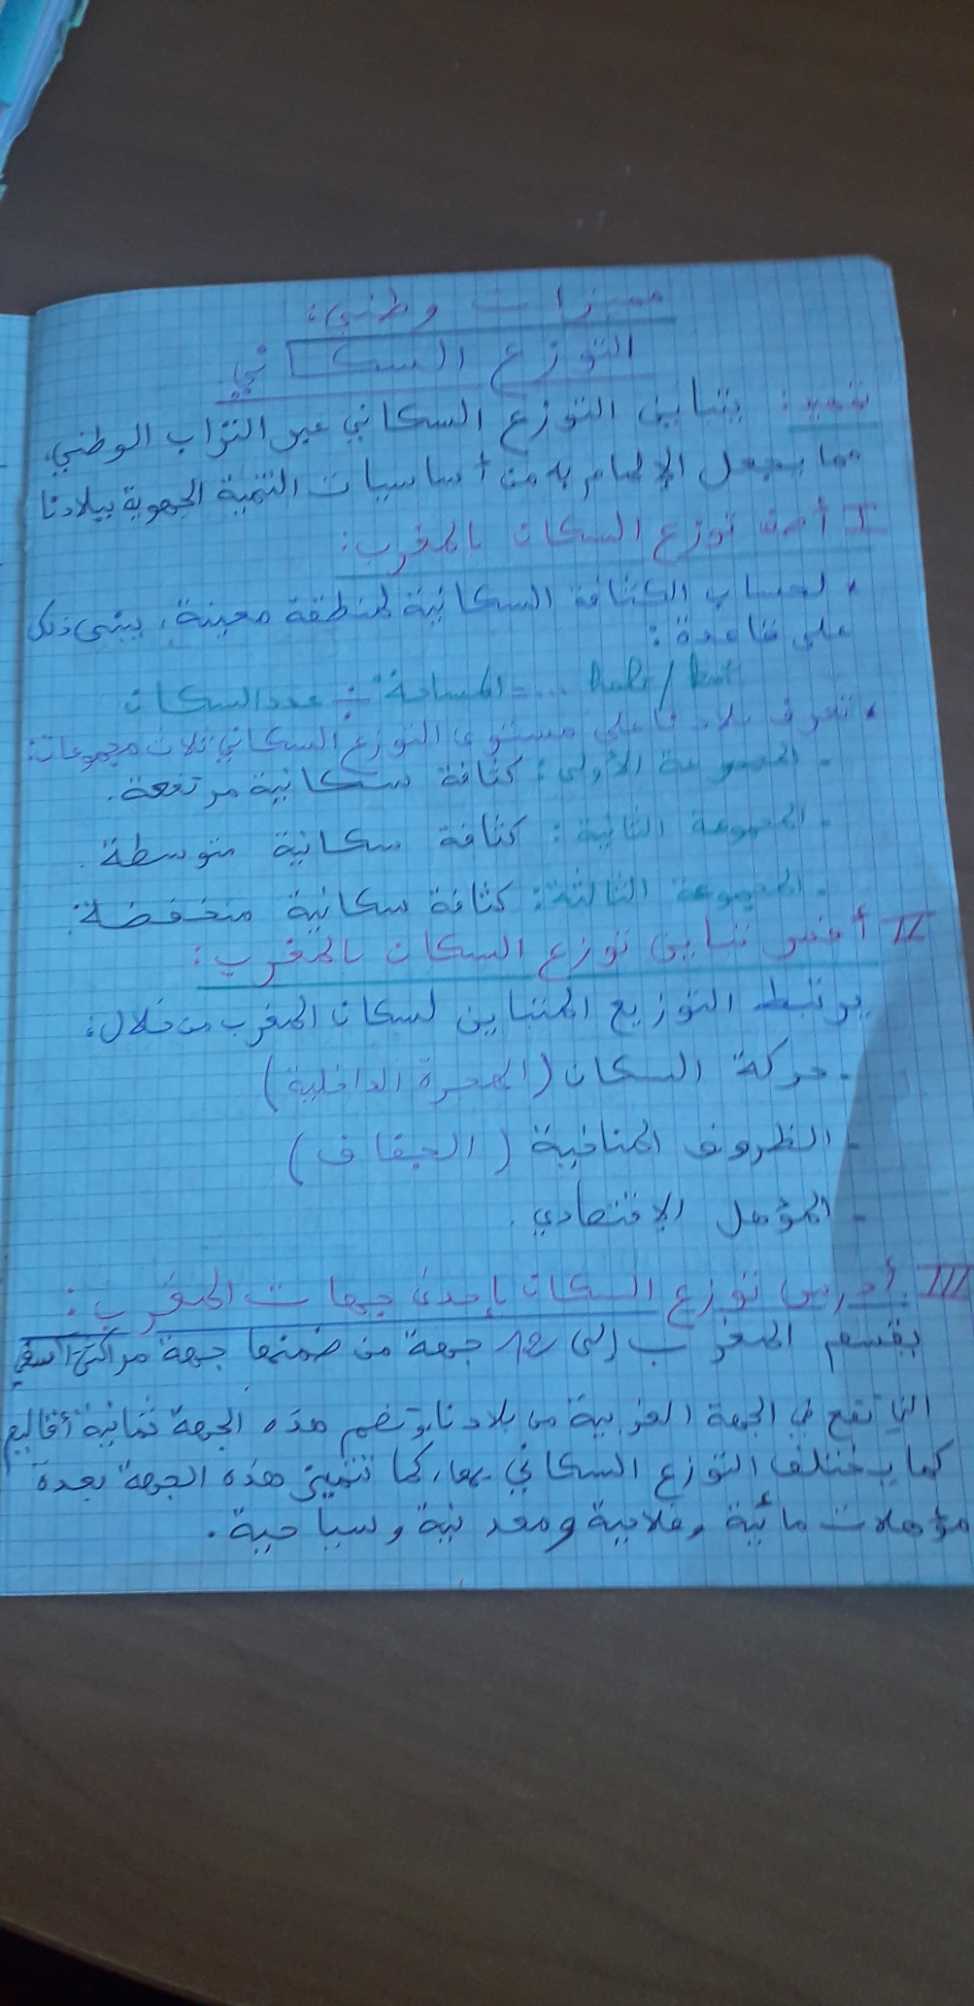 مميزات وطني:
التوزع السكاني
تمهيد: يتباين التوزع السكاني عبر التراب الوطني،
مما يجعل الإلمام به من أساسيات التنمية الجهوية ببلادنا
I أصف توزع السكان بالمغرب:
• لحساب الكثافة السكانية لمنطقة معينة، يبنى ذلك
على قاعدة:
عدد السكان ÷ المساحة = ...
• تعرف بلادنا على مستوى التوزع السكاني ثلاث مجموعات:
- المجموعة الأولى: كثافة سكانية مرتفعة.
- المجموعة الثانية: كثافة سكانية متوسطة.
- المجموعة الثالثة: كثافة سكانية منخفضة.
II أفسر تباين توزع السكان بالمغرب:
يرتبط التوزيع المتباين لسكان المغرب من خلال:
- حركة السكان (الهجرة الداخلية)
- الظروف المناخية (الجفاف)
- المؤهل الإقتصادي.
III أدرس توزع السكان بإحدى جهات المغرب:
يقسم المغرب إلى 12 جهة من ضمنها جهة مراكش آسفي
التي تقع في الجهة الغربية من بلادنا، وتضم هذه الجهة ثمانية أقاليم
كما يختلف التوزع السكاني بها، كما تتميز هذه الجهة بعدة
مؤهلات مائية وفلاحية ومعدنية وسياحية.